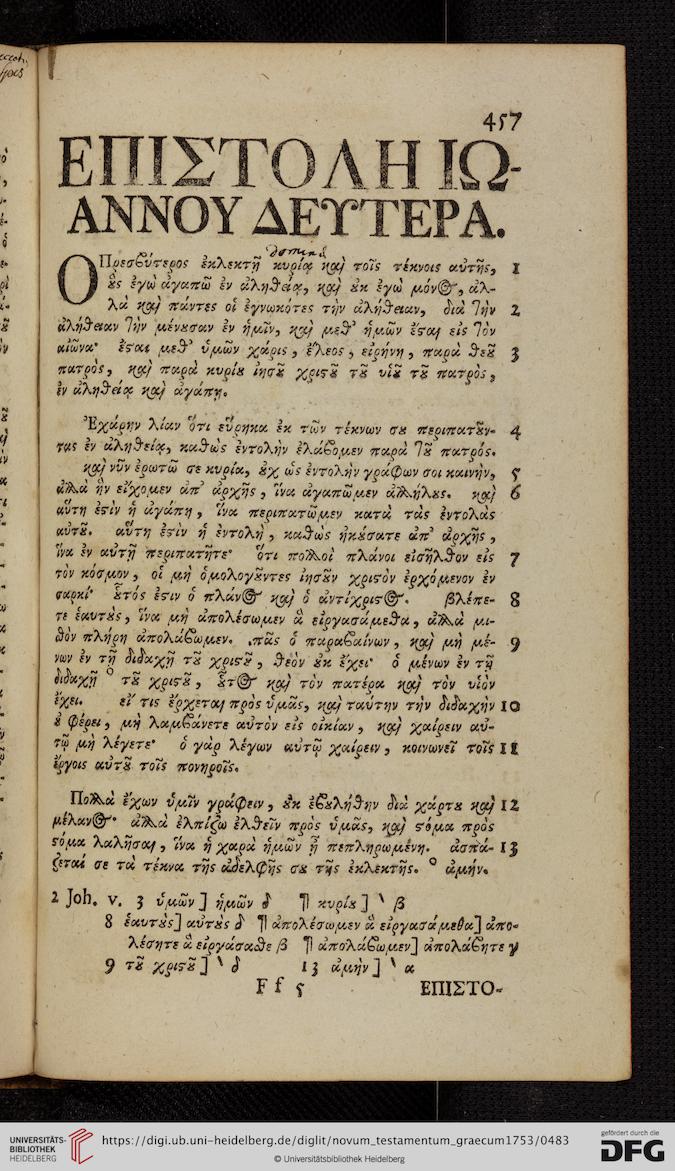 457
ΕΠΙΣΤΟΛΗ ΙΩ-
ΑΝΝΟΥ ΔΕΥΤΕΡΑ.
domina
Ὁ Πρεσβύτερος ἐκλεκτῇ κυρίᾳ καὶ τοῖς τέκνοις αὐτῆς, 1
ὃς ἐγὼ ἀγαπῶ ἐν ἀληθείᾳ, καὶ οὐκ ἐγὼ μόνος, ἀλ-
λὰ καὶ πάντες οἱ ἐγνωκότες τὴν ἀλήθειαν, διὰ τὴν 2
ἀλήθειαν τὴν μένουσαν ἐν ἡμῖν, καὶ μεθ' ἡμῶν ἔσαι εἰς τὸν
αἰῶνα· ἔσαι μεθ' ὑμῶν χάρις, ἔλεος, εἰρήνη, παρὰ θεοῦ 3
πατρὸς, καὶ παρὰ κυρίου ἰησοῦ χριστοῦ τοῦ υἱοῦ τοῦ πατρὸς,
ἐν ἀληθείᾳ καὶ ἀγάπῃ.
Ἐχάρην λίαν ὅτι εὕρηκα ἐκ τῶν τέκνων σου περιπατοῦν- 4
τας ἐν ἀληθείᾳ, καθὼς ἐντολὴν ἐλάβομεν παρὰ τοῦ πατρός.
καὶ νῦν ἐρωτῶ σε κυρία, οὐχ ὡς ἐντολὴν γράφων σοι καινὴν, 5
ἀλλὰ ἣν εἴχομεν ἀπ' ἀρχῆς, ἵνα ἀγαπῶμεν ἀλλήλους. καὶ 6
αὕτη ἐστὶν ἡ ἀγάπη, ἵνα περιπατῶμεν κατὰ τὰς ἐντολὰς
αὐτοῦ. αὕτη ἐστὶν ἡ ἐντολὴ, καθὼς ἠκούσατε ἀπ' ἀρχῆς,
ἵνα ἐν αὐτῇ περιπατῆτε· ὅτι πολλοὶ πλάνοι εἰσῆλθον εἰς 7
τὸν κόσμον, οἱ μὴ ὁμολογοῦντες ἰησοῦν χριστὸν ἐρχόμενον ἐν
σαρκί· οὗτός ἐστιν ὁ πλάνος καὶ ὁ ἀντίχριστος. βλέπε- 8
τε ἑαυτοὺς, ἵνα μὴ ἀπολέσωμεν ἃ εἰργασάμεθα, ἀλλὰ μι-
σθὸν πλήρη ἀπολάβωμεν. πᾶς ὁ παραβαίνων, καὶ μὴ μέ- 9
νων ἐν τῇ διδαχῇ τοῦ χριστοῦ, θεὸν οὐκ ἔχει· ὁ μένων ἐν τῇ
διδαχῇ ° τοῦ χριστοῦ, οὗτος καὶ τὸν πατέρα καὶ τὸν υἱὸν
ἔχει. εἴ τις ἔρχεται πρὸς ὑμᾶς, καὶ ταύτην τὴν διδαχὴν 10
οὐ φέρει, μὴ λαμβάνετε αὐτὸν εἰς οἰκίαν, καὶ χαίρειν αὐ-
τῷ μὴ λέγετε· ὁ γὰρ λέγων αὐτῷ χαίρειν, κοινωνεῖ τοῖς 11
ἔργοις αὐτοῦ τοῖς πονηροῖς.
Πολλὰ ἔχων ὑμῖν γράφειν, οὐκ ἐβουλήθην διὰ χάρτου καὶ 12
μέλανος· ἀλλὰ ἐλπίζω ἐλθεῖν πρὸς ὑμᾶς, καὶ στόμα πρὸς
στόμα λαλῆσαι, ἵνα ἡ χαρὰ ἡμῶν ᾖ πεπληρωμένη. ἀσπά- 13
ζεταί σε τὰ τέκνα τῆς ἀδελφῆς σου τῆς ἐκλεκτῆς. ° ἀμήν.
2 Joh. v. 3 ὑμῶν] ἡμῶν δ ¶ κυρίου] ‵ β
8 ἑαυτοὺς] αὐτοὺς δ ¶ ἀπολέσωμεν ἃ εἰργασάμεθα] ἀπο-
λέσητε ἃ εἰργάσασθε β ¶ ἀπολάβωμεν] ἀπολάβητε γ
9 τοῦ χριστοῦ] ‵ δ 13 ἀμήν] ‵ α
F f 5 ΕΠΙΣΤΟ-
UNIVERSITÄTS-
BIBLIOTHEK
HEIDELBERG
https://digi.ub.uni-heidelberg.de/diglit/novum_testamentum_graecum1753/0483
© Universitätsbibliothek Heidelberg
gefördert durch die
DFG